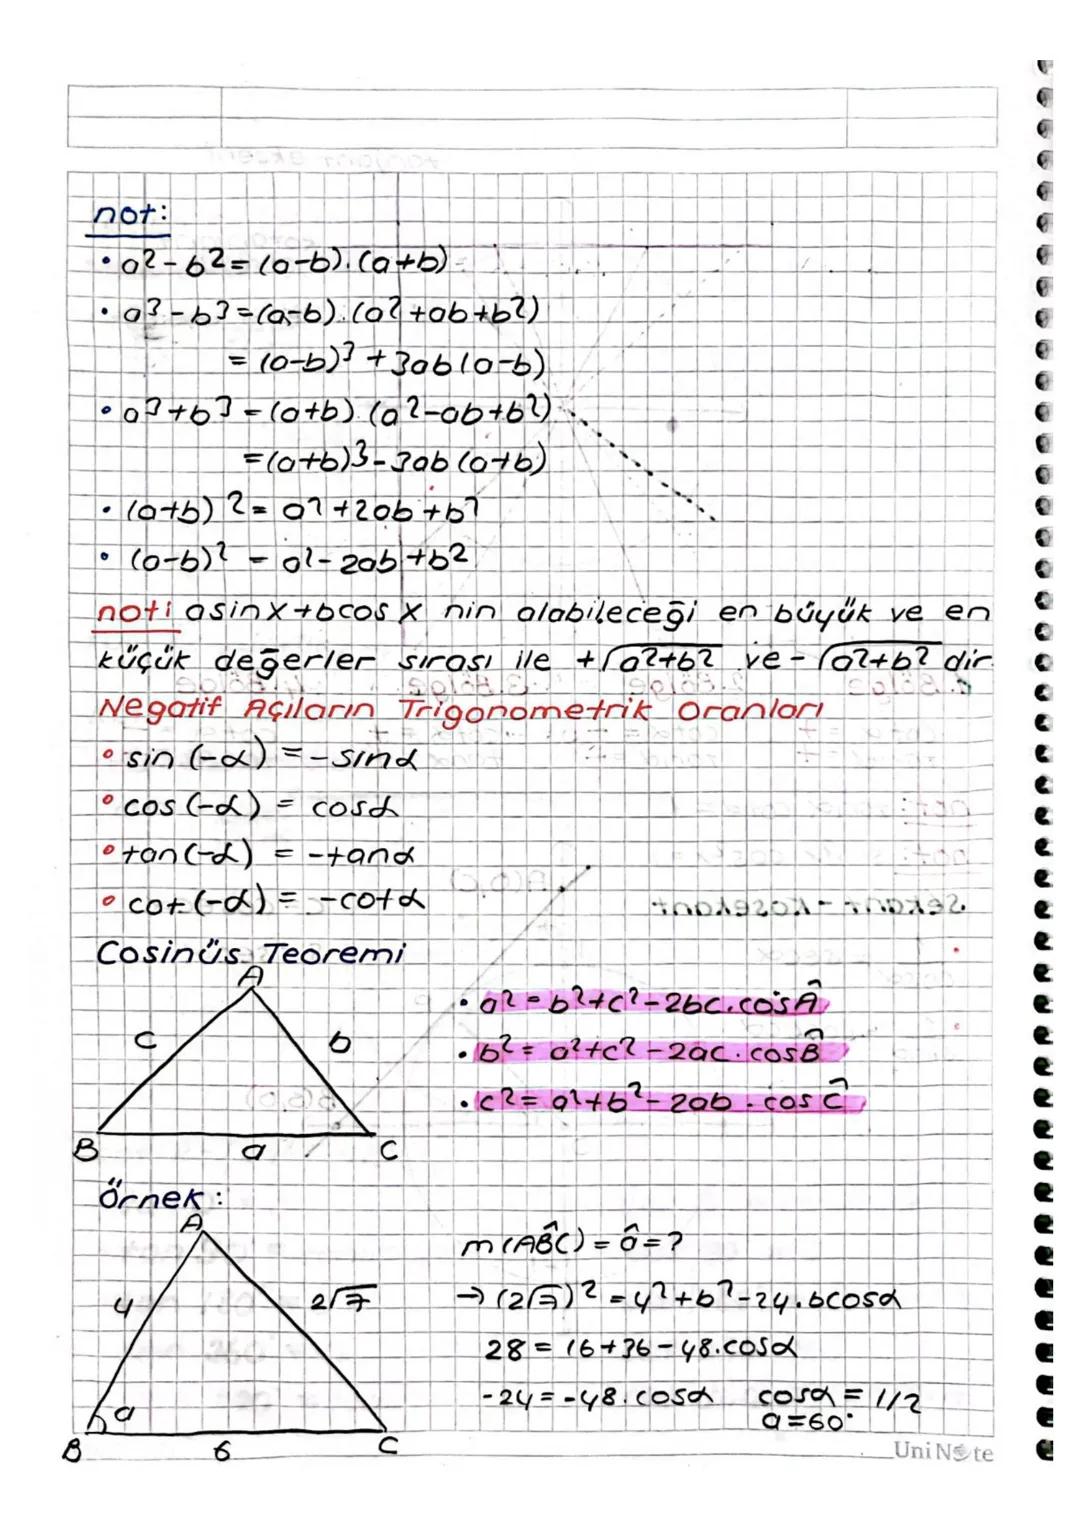 not:
• a²-b²=(a-b).(a+b)
• a³-b³=(a-b).(a²+ab+b²)
= (a-b)³+3ab(a-b)
• a³+b³=(a+b).(a²-ab+b²)
=(a+b)³-3ab(a+b)
• (a+b)²= a²+2ab+b²
• (a-b)² = a²-2ab+b²
not: asinx+bcosx nin alabileceği en büyük ve en
küçük değerler sırası ile +√a²+b² ve -√a²+b² dir.
Negatif Açıların Trigonometrik Oranları
• sin (-α) = -sinα
• cos (-α) = cosα
• tan(-α) = -tanα
• cot (-α) = -cotα
Cosinüs Teoremi
A
c b
B a C
• a²=b²+c²-2bc.cosÂ
• b²= a²+c²-2ac.cosB̂
• c²= a²+b²-2ab.cosĈ
örnek:
A
4 2√7
a
B 6 C
m(AB̂C)=â=?
→(2√7)²=4²+b²-24.bcosα
28 = 16+36-48.cosα
-24=-48.cosα cosα=1/2
a=60°
UniNote